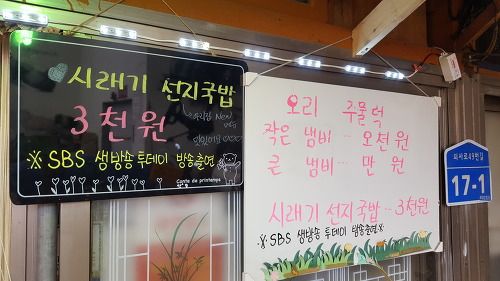 시래기 선지국밥
3천원
※ SBS 생방송 투데이 방송출연
Conte de printemps
오리 주물럭
작은 냄비 ·· 오천원
큰 냄비 ··· 만 원
시래기 선지국밥 ·· 3천원
※ SBS 생방송 투데이 방송출연 ※
17-1